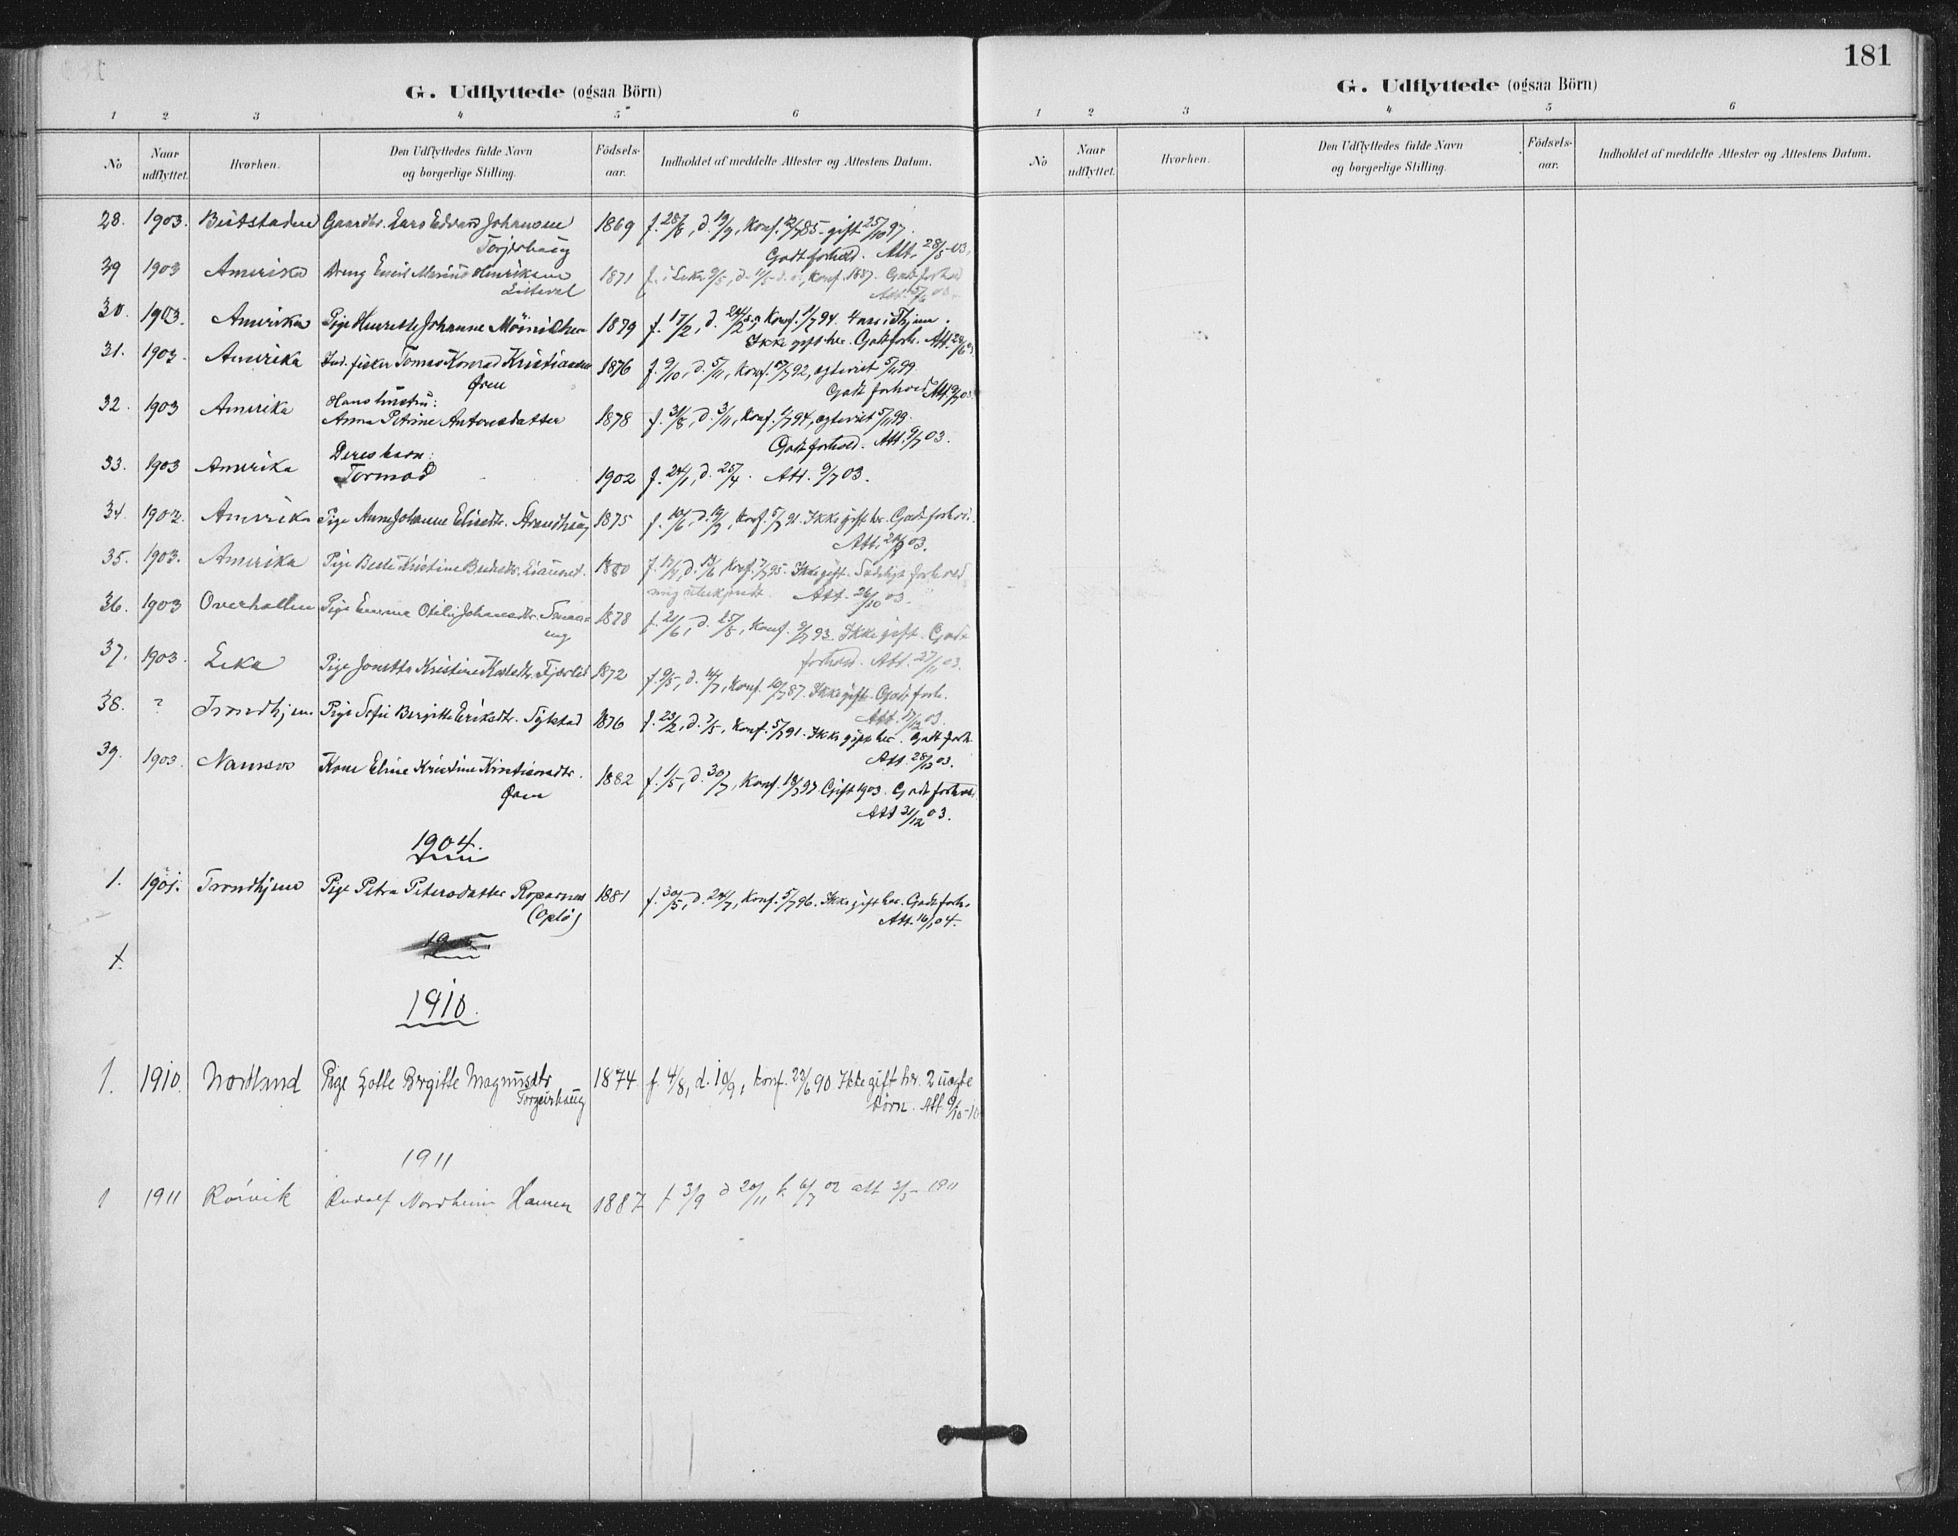 181
G. Udflyttede (ogsaa Börn)
1 2 3 4 5 6
No Naar udflyttet. Hvorhen. Den Udflyttedes fulde Navn og borgerlige Stilling. Födsels-aar. Indholdet af meddelte Attester og Attestens Datum.
28. 1903. Beitstaden Gaardbr. Lars Edvard Johansen 1869 f. 28/8, d. 19/9, Konf. 12/7 85 - gift 25/10 97.
Torjershaug Godt forhold. Att. 28/5 - 03.
29 1903 Amerika Dreng Emil Marius Henriksen 1871 f. i Leka 9/5, d. Konf. 1887. Godt forhold
Att. 03.
30. 1903. Amerika Pige Henrette Johanne Möinichen 1879 f. 17/2, d. Konf. 1/7 94. 4 aar i Thjem.
Ikke gift her. Godt forh. Att.
31. 1903. Amerika Ind. fisker Tomas Konrad Kristiansen 1876 f. 9/10, d. 5/11, Konf. 92, egteviet 5/11 99
Øren Godt forhold Att. 9/7 03.
32. 1903 Amerika Hans hustru:
Anna Petrine Antonsdatter 1878 f. 31/8, d. 3/11, Konf. 1/7 94, egteviet 5/11 99.
Godt forhold. Att. 9/7 03.
33. 1903 Amerika Deres barn:
Tormod 1902 f. 24/1, d. 25/4. Att. 9/7 03.
34. 1903. Amerika Pige Anna Johanne Elisedtr. Strandhaug 1875 f. 10/6, d. Konf. 5/7 91. Ikke gift her. Godt forh.
Att. 03.
35. 1903. Amerika Pige Kristine 1880 Konf. 7/7 95. Ikke gift. forhold
Att. 26/10 03.
36. 1903 Overhallen Pige Emma Otilie Johansdtr. 1878 f. 21/6, d. 25/8, Konf. 2/7 93. Ikke gift. Godt
forhold. Att. 27/11 03.
37. 1903. Leka Pige Jonetta Kristine 1872 f. 9/5, d. 14/7, Konf. 10/7 87. Ikke gift. Godt forh.
Att. 17/12 03.
38. ? Trondhjem Pige Sofie Bergitte Eriksdtr. 1876 f. 23/2, d. 7/5, Konf. 5/7 91. Ikke gift her. Godt forh.
Att. 28/12 03.
39. 1903. Namsos Kone Eline Kristine Kristiansdtr. 1882 f. 1/5, d. 30/7, Konf. 18/7 97 Gift 1903. Godt forhold
Øren Att 31/12 03.
1904.
1. 1901. Trondhjem Pige Petra Petersdatter Roparnes 1881 f. 30/5, d. 24/7, Konf. 5/7 96. Ikke gift her. Godt forh.
(Oplö) Att. 16/1 04.
1.
1910.
1. 1910. Nordland Pige Lotte Bergitte Magnusdtr 1874 f. 4/8, d. 10/9, konf. 22/6 90 Ikke gift her. 2 uægte
Torgeirshaug börn. Att 9/10 - 10
1911
1 1911 Rörvik Rudolf Nordheim Hansen 1887 f 3/9 d 20/11 k. 6/7 02 att 3/5 - 1911
G. Udflyttede (ogsaa Börn)
1 2 3 4 5 6
No Naar udflyttet. Hvorhen. Den Udflyttedes fulde Navn og borgerlige Stilling. Födsels-aar. Indholdet af meddelte Attester og Attestens Datum.